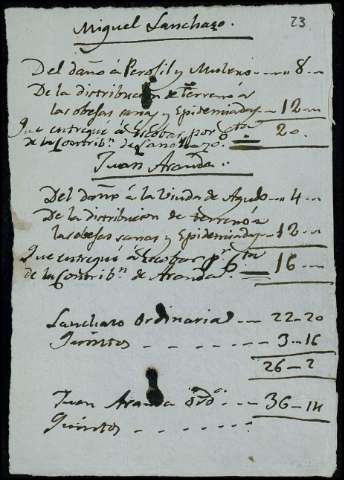 23
Miguel Lanchazo.
Del daño á Perosil y Moreno ---- 8 --
De la distribucion de terreno á
las obejas sanas y Epidemiadas -- 12 --
Que entregué á Escobar por cta 20 --
de la Contribn de Lanchazo.
Juan Aranda.
Del daño á la Viuda de Agudo -- 4 --
De la distribucion de terreno á
las obejas sanas y Epidemiadas -- 12 --
Que entregué á Escobar p cta 16 --
de la Contribn de Aranda.
Lanchazo Ordinaria --- 22-20
Quintos --- 3-16
26-2
Juan Aranda ordo --- 36-14
Quintos - - - - - -